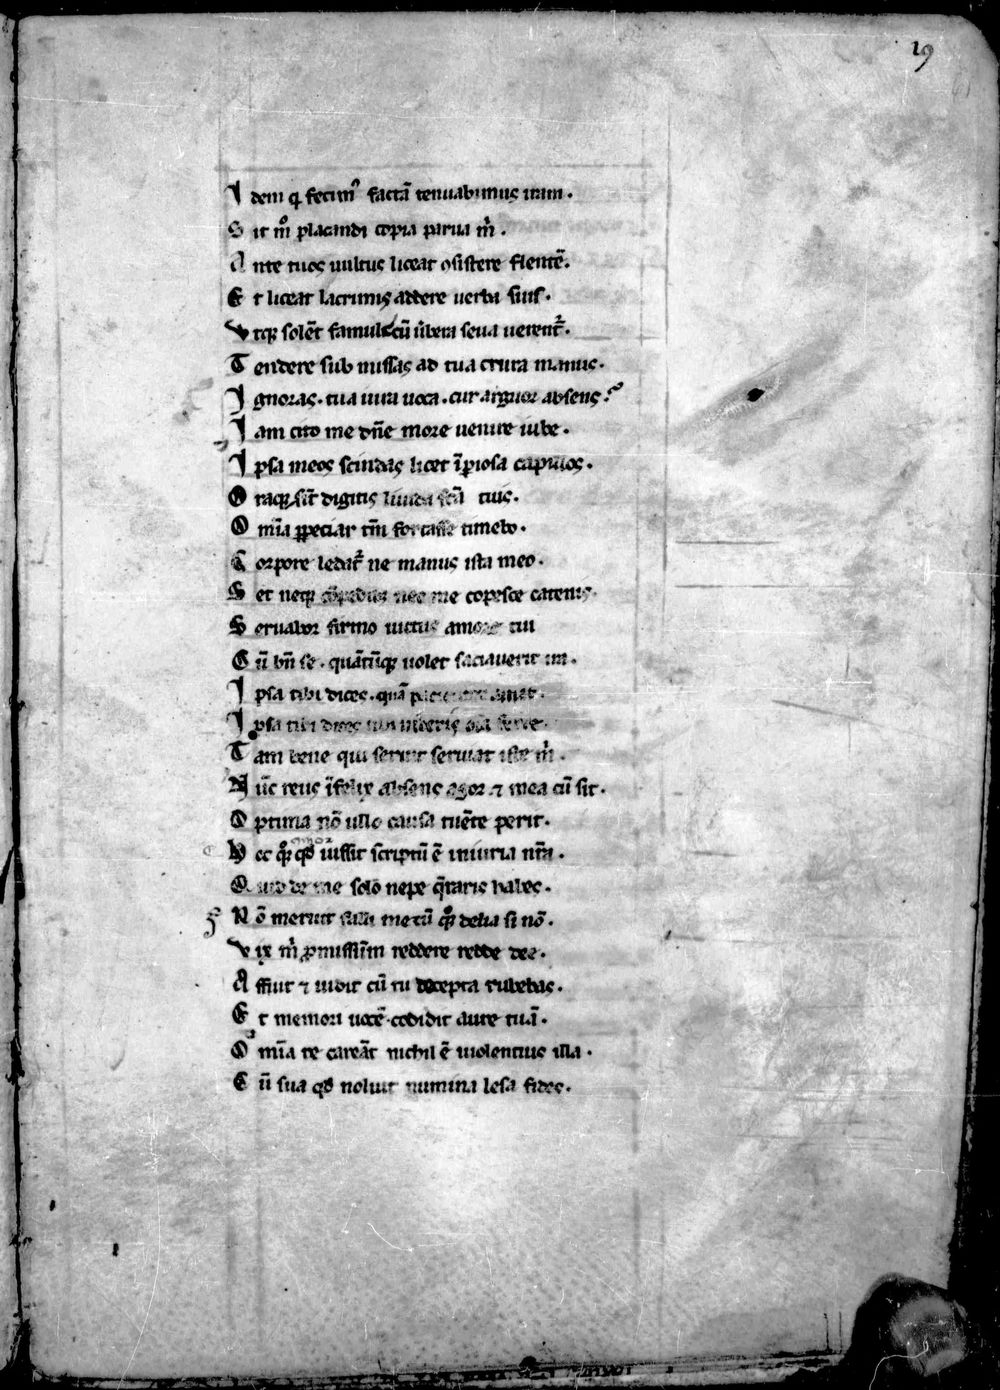 19
I dem q̱ fecimꝰ factā tenuabimus iram .
S it m̊ placandi copia parua m̊ .
A nte tuos uultus liceat ꝯsistere flentē .
E t liceat lacrimis addere uerba suis .
V tqꝫ solēt famuli cū ủbera seua uerent᷑ .
T endere sub missas ad tua crura manus .
I gnoras . tua iura uoca . cur arguor absens ?
I am cito me dn̄e more uenire iube .
I psa meos scindas licet īpiosa capillos .
O raqꝫ sīt digitis liuida  tuis .
O mīa ꝑpetiar tm̄ fortasse timebo .
C orpore ledat᷑ ne manus ista meo .
S et neqꝫ nec me copesce catenis .
S eruabor firmo uictus amore tui
C ū bn̄ se . quātūqꝫ uolet saciauerit ira .
I psa tibi dices . quā pacienter amat .
I psa tibi dices ubi uideris oīa ferre .
T am bene qui seruit seruiat iste m̊ .
N ūc reus īfelix absens agor ⁊ mea cū sit .
O ptima nō ullo causa tuēte perit .
H ec qꝫ qđ amor iussit scriptū ē iniuria nr̄a .
Q uod de me solo nepe q̄raris habes .
N ō meruit falli mecū qꝫ delia si nō .
V ix m̊ ꝓmissūm reddere redde dee .
A ffuit ⁊ uidit cū tu decepta rubebas .
E t memori uocē condidit aure tuā .
O mīa te careāt nichil ē uiolentius illa .
C ū sua qđ noluit numina lesa fides .